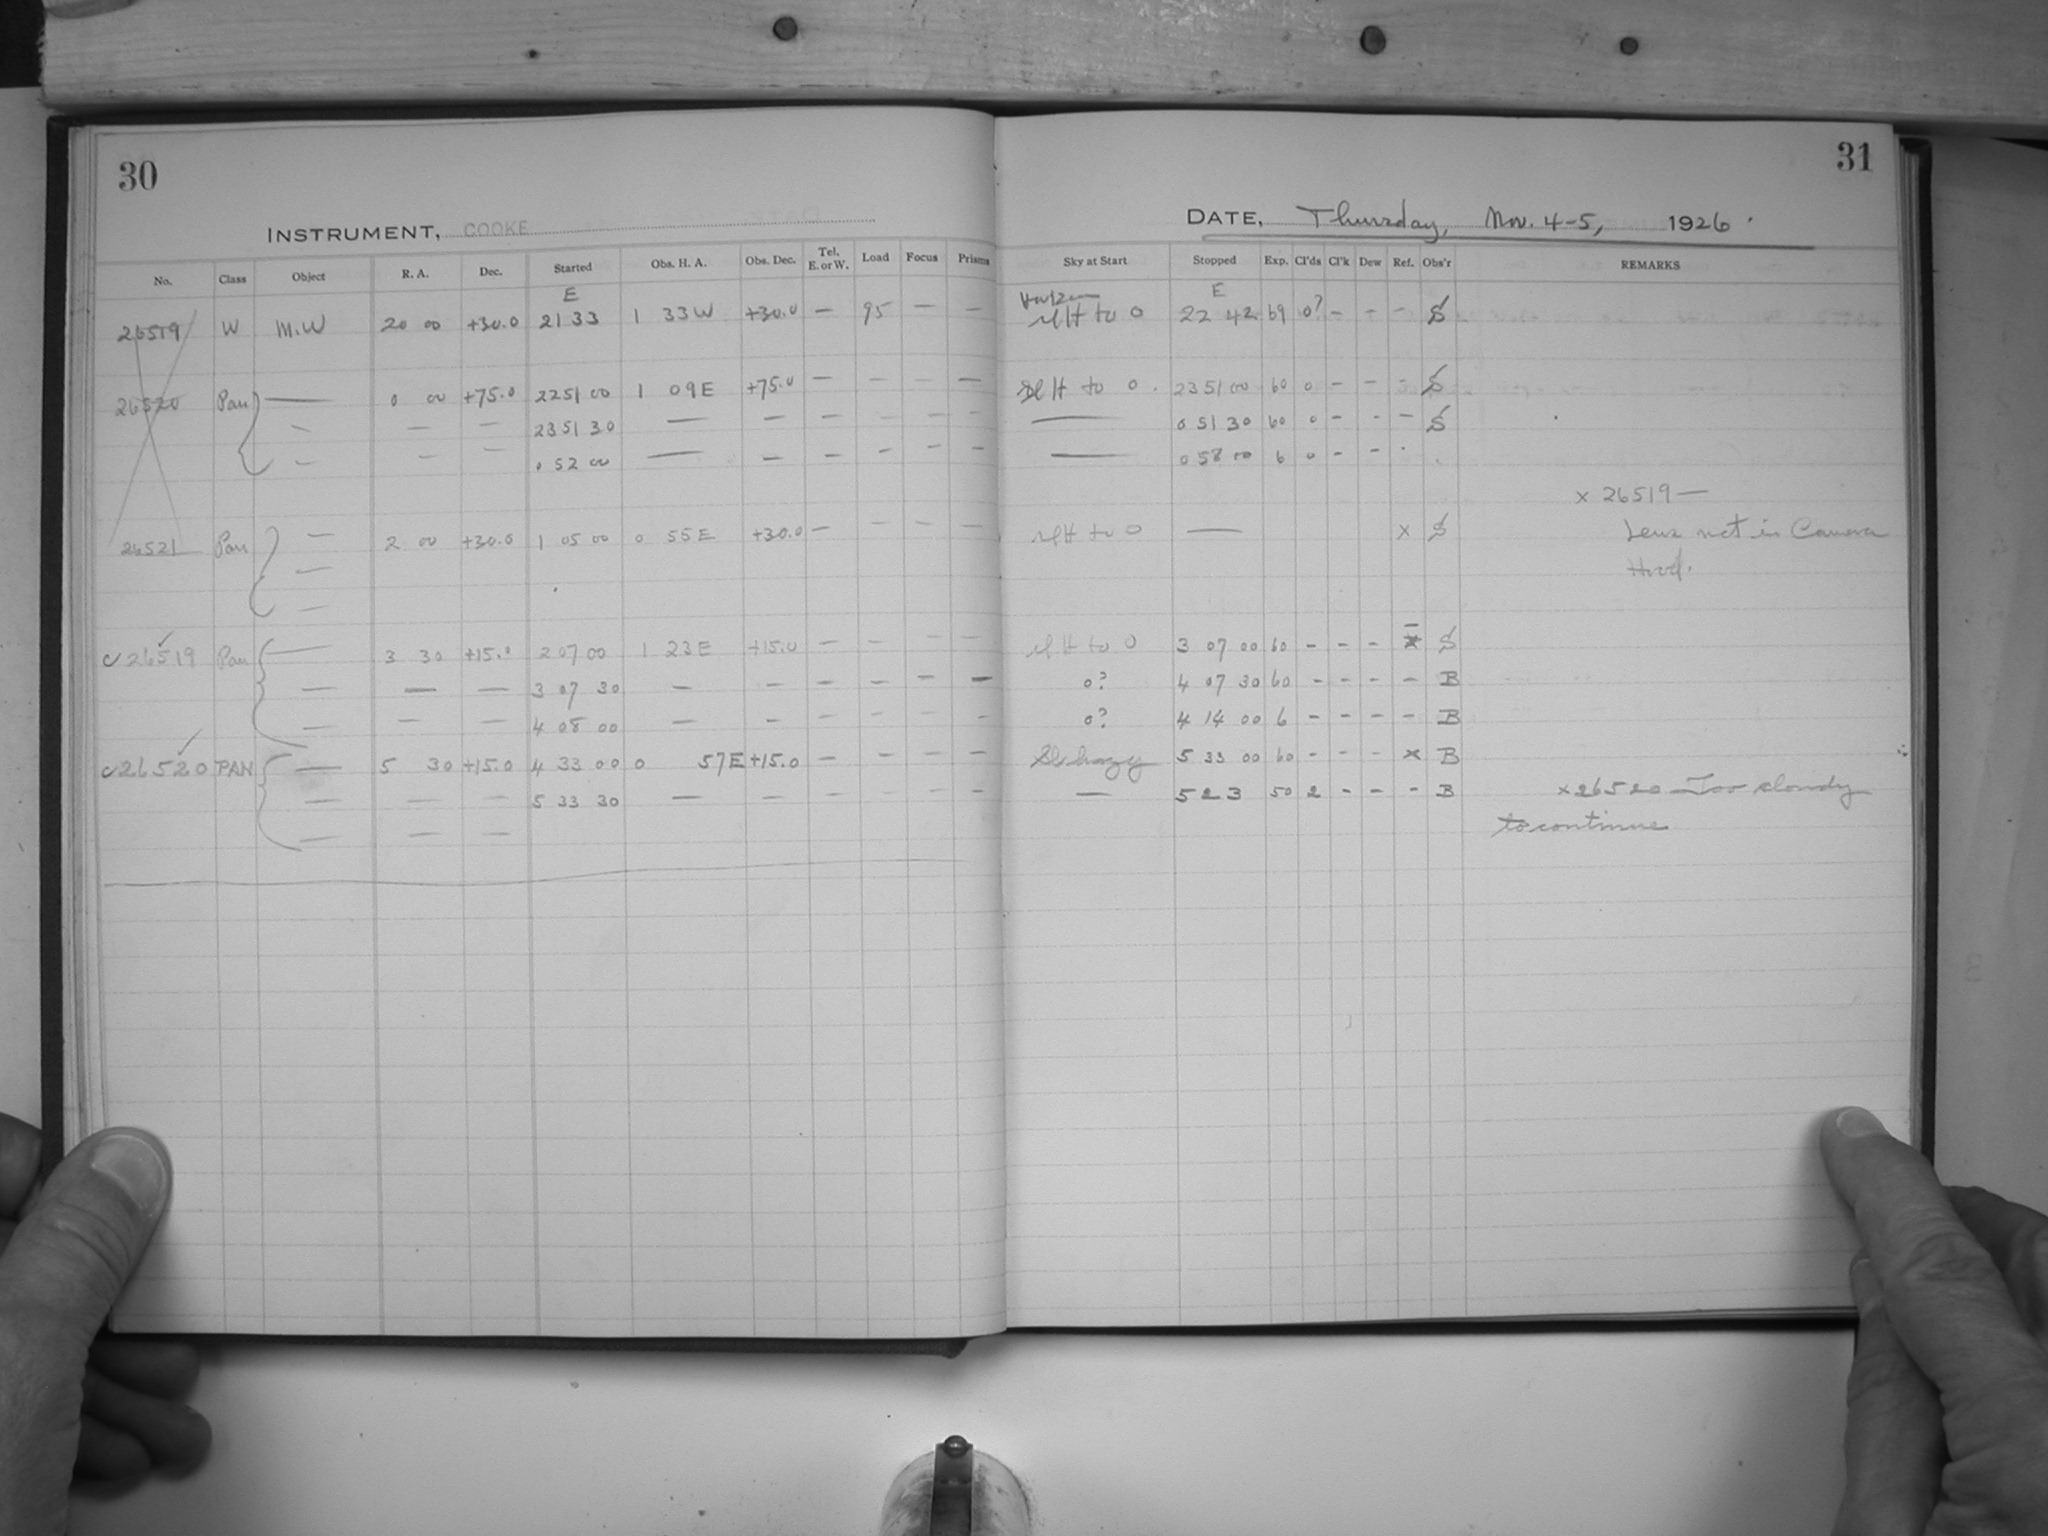 30
INSTRUMENT, COOKE
No. Class Object R. A. Dec. Started Obs. H. A. Obs. Dec. Tel. E. or W. Load Focus Prisms
E
26519 W M.W 20 00 +30.0 21 33 1 33 W +30.0 — 95 — —
26520 Pan — 0 00 +75.0 22 51 00 1 09 E +75.0 — — — —
— — — 23 51 30 — — — — — —
— — — 0 52 00 — — — — — —
26521 Pan — 2 00 +30.0 1 05 00 0 55 E +30.0 — — — —
—
—
c 26519 ✓ Pan — 3 30 +15.0 2 07 00 1 23 E +15.0 — — — —
— — — 3 07 30 — — — — — —
— — — 4 08 00 — — — — — —
c 26520 ✓ PAN — 5 30 +15.0 4 33 00 0 57 E +15.0 — — — —
— — — 5 33 30 — — — — — —
— — —
31
DATE, Thursday, Nov. 4-5, 1926
Sky at Start Stopped Exp. Cl'ds Cl'k Dew Ref. Obs'r REMARKS
E
sl H to 0 22 42 69 0? - - - S
sl H to 0 . 23 51 00 60 0 - - - S
— 0 51 30 60 0 - - - S
— 0 58 00 6 0 - - -
x 26519 —
sl H to 0 — x S Lens not in Camera
Hood.
sl H to 0 3 07 00 60 - - - x S
0? 4 07 30 60 - - - - B
0? 4 14 00 6 - - - - B
Sl hazy 5 33 00 60 - - - x B
— 5 23 50 2 - - - B x 26520 — Too cloudy
to continue